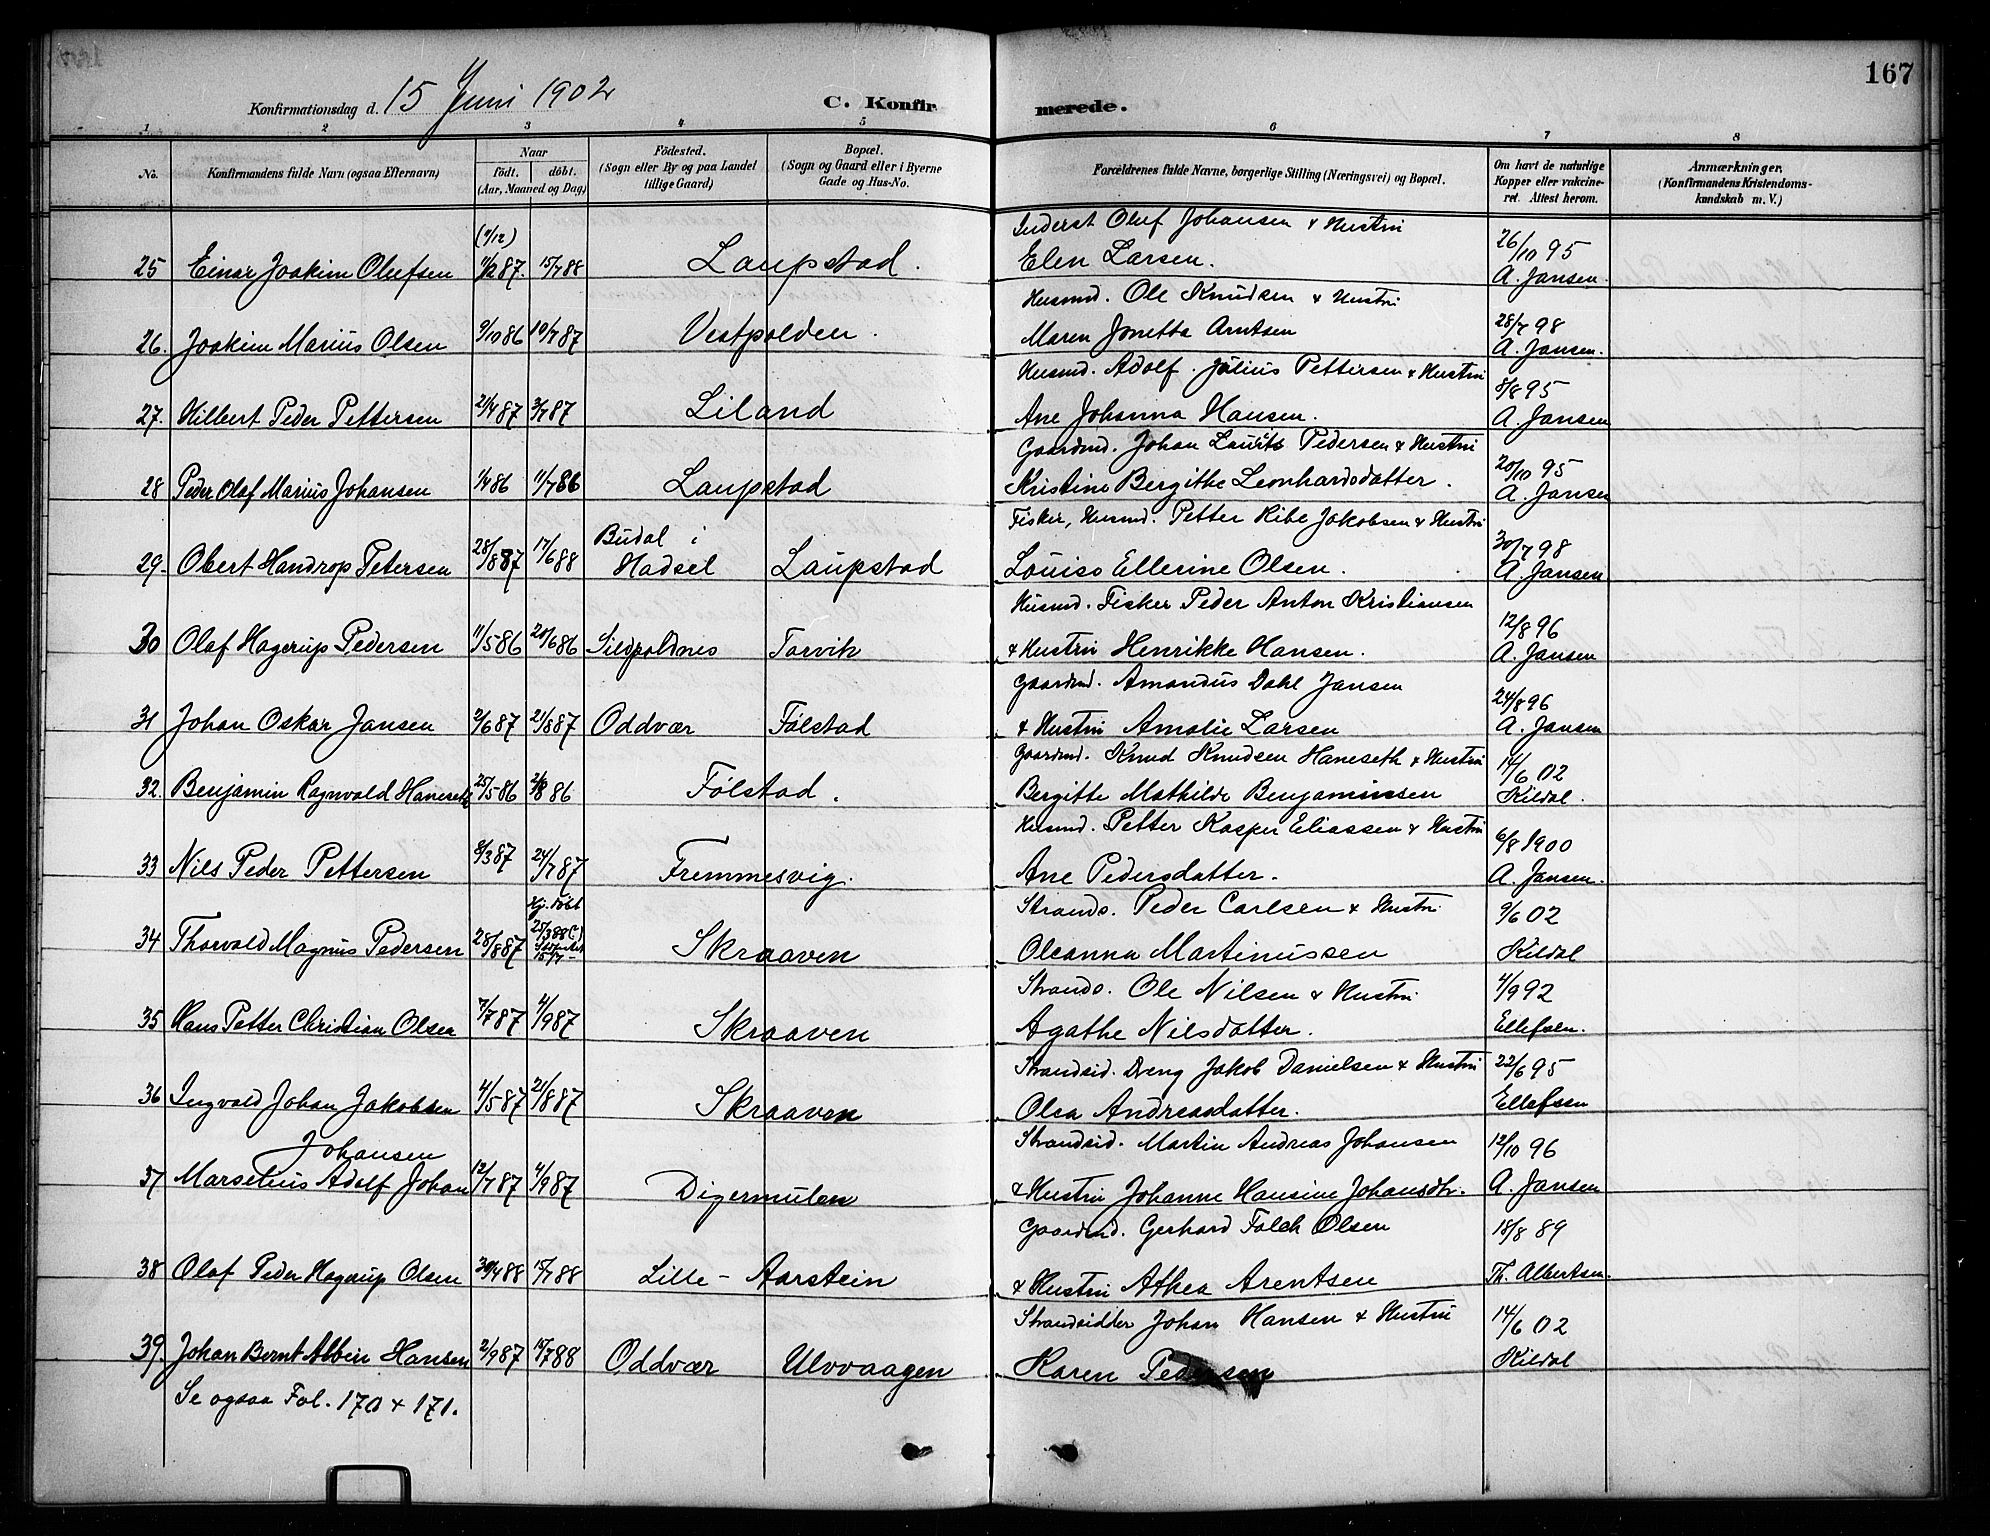 167
Konfirmationsdag d. 15 Juni 1902
C. Konfirmerede.
1 2 3 4 5 6 7 8
No.
Konfirmandens fulde Navn (ogsaa Efternavn)
Naar
født. døbt.
(Aar, Maaned og Dag)
Fødested.
(Sogn eller By og paa Landet
tillige Gaard)
Bopæl.
(Sogn og Gaard eller i Byerne
Gade og Hus-No.
Forældrenes fulde Navne, borgerlige Stilling (Næringsvei) og Bopæl.
Om havt de naturlige
Kopper eller vakcine-
ret. Attest herom.
Anmærkninger.
(Konfirmandens Kristendoms-
kundskab m. V.)
Inderst Oluf Johansen & Hustru
25 Einar Joakim Olufsen 11/12 87. 15/7 88 Laupstad. Elen Larsen. 26/10 95 A. Jansen.
Husmd. Ole Knudsen & Hustru
26. Joakim Marius Olsen 9/10 86 10/7 87 Vestpolden. Maren Jonetta Arntsen 28/7 98 A. Jansen.
Husmd. Adolf Julius Pettersen & Hustru
27. Hilbert Peder Pettersen 21/4 87 3/7 87 Liland Ane Johanna Hansen. 8/8 95 A. Jansen
Gaardmd. Johan Laurits Pedersen & Hustru
28 Peder Olaf Marius Johansen 1/4 86 11/7 86 Laupstad Kristine Bergithe Leonhardsdatter. 20/10 95 A. Jansen
Fisker, Husmd. Petter Ribe Jakobsen & Hustru
29. Obert Handrop Petersen 28/8 87 17/6 88 Budal i Hadsel Laupstad Louise Ellerine Olsen. 30/7 98 A. Jansen
Husmd. Fisker Peder Anton Kristiansen
30 Olaf Hagerup Pedersen 11/5 86 20/6 86 Sildpoldnes Torvik & Hustru Henrikke Hansen. 12/8 96 A. Jansen
Gaardmd. Amandus Dahl Jansen
31 Johan Oskar Jansen 2/6 87 21/8 87 Oddvær Følstad & Hustru Amalie Larsen 24/8 96 A. Jansen
Gaardmd. Knud Knudsen Haneseth & Hustru
32. Benjamin Ragnvald Haneseth 25/5 86 2/8 86 Følstad. Bergitte Mathilde Benjaminsen 14/6 02 Kildal.
Husmd. Petter Kasper Eliassen & Hustru
33 Nils Peder Pettersen 8/3 87 24/7 87 Fremmesvig. Ane Pedersdatter. 6/8 1900 A. Jansen.
Strands. Peder Carlsen & Hustru
34 Thorvald Magnus Pedersen 28/8 87 Hj. døbt 25/3 88 Skraaven Oleanna Martinussen 9/6 02 Kildal
Strands. Ole Nilsen & Hustru
35 Hans Petter Christian Olsen 7/7 87 4/9 87 Skraaven Agathe Nilsdatter. 4/9 92 Ellefsen.
Strandsid. Dreng Jakob Danielsen & Hustru
36 Ingvald Johan Jakobsen 4/5 87 21/8 87 Skraaven Olea Andreasdatter. 22/6 95 Ellefsen
Johansen Strandsid. Martin Andreas Johansen
37 Marselius Adolf Johan 12/7 87 4/9 87 Digermulen & Hustru Johanne Hansine Johansdtr. 12/10 96 A. Jansen
Gaardmd. Gerhard Falch Olsen
38 Olaf Peder Hagerup Olsen 30/4 88 15/7 88 Lille-Aarstein & Hustru Athea Arentsen 18/8 89 Th. Albertsen.
Strandsidder Johan Hansen & Hustru
39. Johan Bernt Albin Hansen 2/9 87 15/7 88 Oddvær Ulvvaagen Karen Pedersen 14/6 02 Kildal
Se ogsaa Fol. 170 & 171.